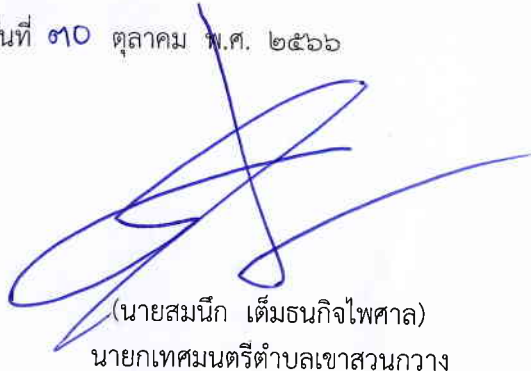 นที่ ๓๐ ตุลาคม พ.ศ. ๒๕๖๖
(นายสมนึก เต็มธนกิจไพศาล)
นายกเทศมนตรีตำบลเขาสวนกวาง